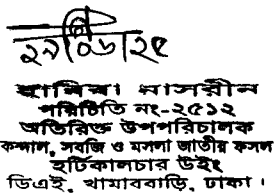 ২৯/০৬/২৫
নাসরীন
পরিচিতি নং-২৫১২
অতিরিক্ত উপপরিচালক
কন্দাল, সবজি ও মসলা জাতীয় ফসল
হর্টিকালচার উইং
ডিএই, খামারবাড়ি, ঢাকা।